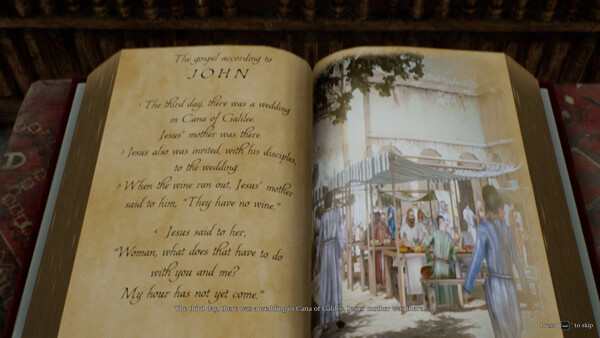 The gospel according to
JOHN
1 The third day, there was a wedding
in Cana of Galilee.
Jesus' mother was there.
2 Jesus also was invited, with his disciples,
to the wedding.
3 When the wine ran out, Jesus' mother
said to him, "They have no wine."
4 Jesus said to her,
"Woman, what does that have to do
with you and me?
My hour has not yet come."
The third day, there was a wedding in Cana of Galilee. Jesus' mother was there.
Press to skip